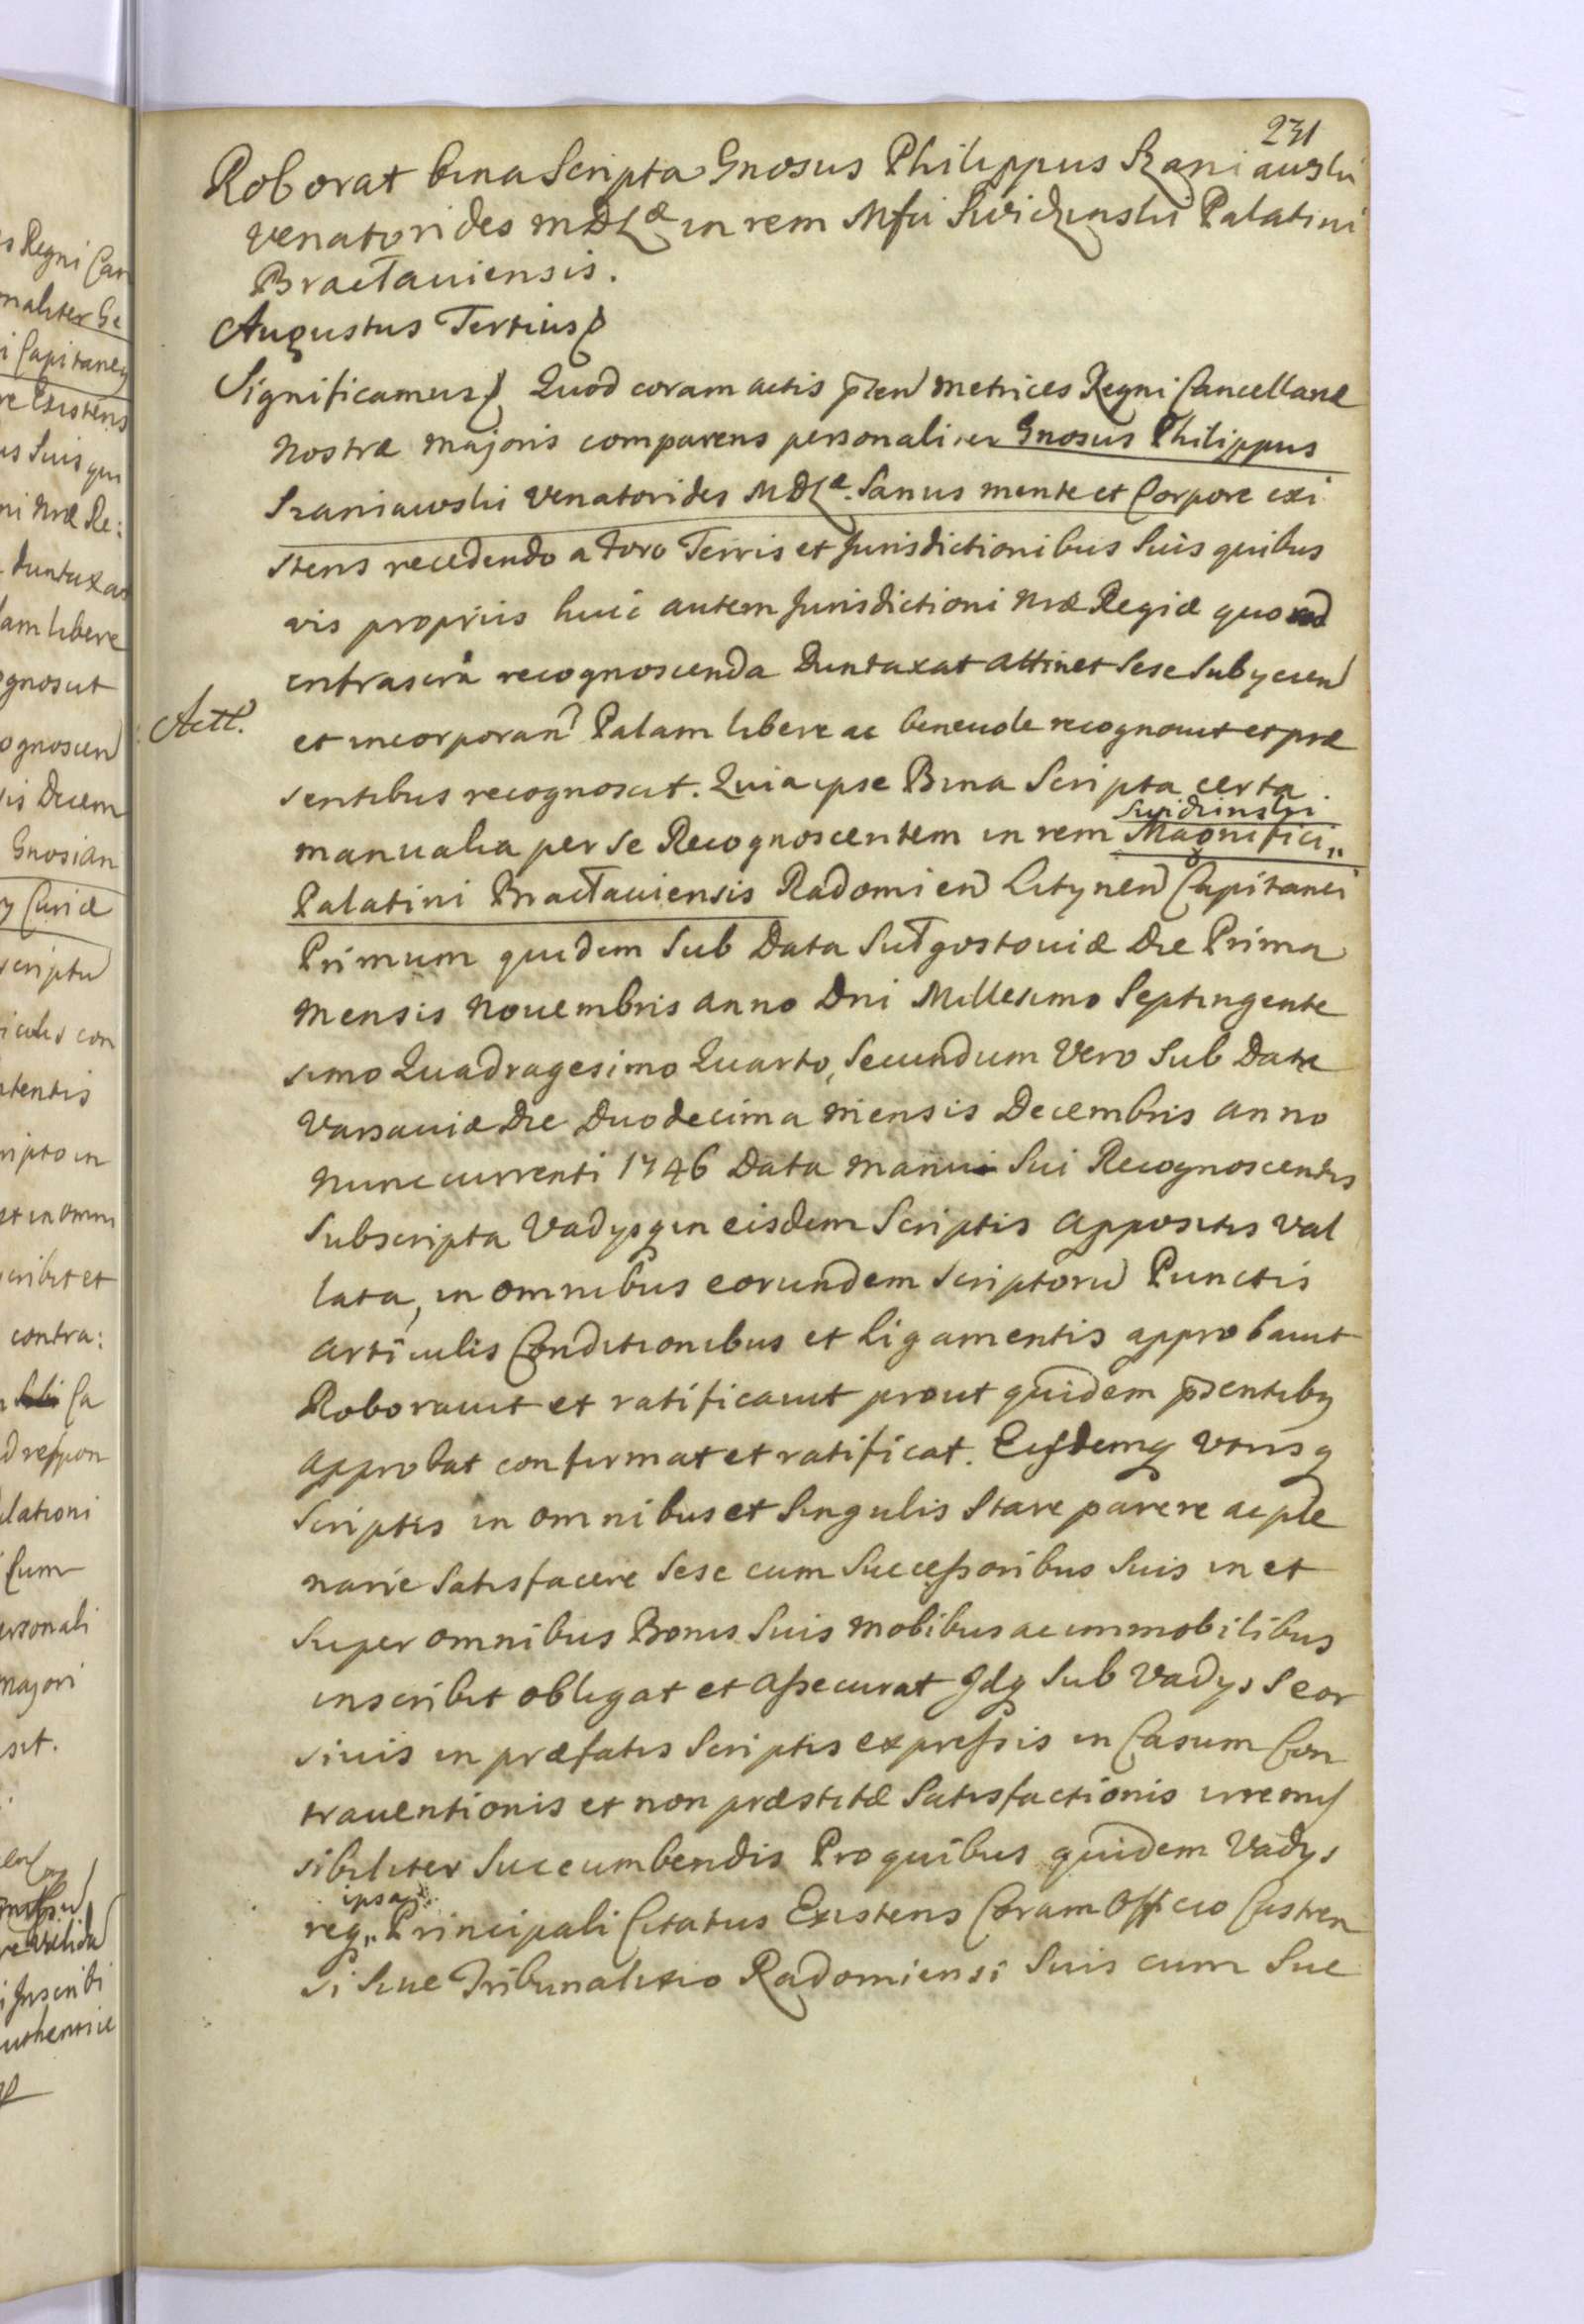 231
Roborat bina Scripta Gnosus Philippus Szaniawski
Venatorides MDLæ in rem Mfci Swidzinski Palatini
Bracłaviensis.
Augustus Tertius
Significamus Quod coram actis pñen Metrices Regni Cancellariæ
Nostræ Majoris comparens personaliter Gnosus Philippus
Szaniawski Venatorides MDLæ. Sanus mente et Corpore exi
stens recedendo a Foro Terris et Jurisdictionibus Suis quibus
vis propriis huic autem Jurisdictioni Nræ Regiæ quoad
infrascrã recognoscenda Duntaxat attinet Sese Subycien
Actt.
et incorporan Palam libere ac benevole recognovit et præ
sentibus recognoscit. Quia ipse Bina Scripta certa
manualia per se Recognoscentem in rem Magnifici „
Swidzinski
Palatini Bracłaviensis Radomien Litynen Capitanei
Primum quidem Sub Data Sułgostoviæ Die Prima
Mensis Novembris anno Dni Millesimo Septingente
simo Quadragesimo Quarto, Secundum Vero Sub Data
Varsaviæ Die Duodecima mensis Decembris anno
Nunc currenti 1746 Data manu Sui Recognoscentis
Subscripta Vadysq in eisdem Scriptis appositis val
lata, in omnibus eorundem Scriptoru Punctis
articulis Conditionibus et Ligamentis approbavit
Roboravit et ratificavit prout quidem pñsentibq
approbat confirmat et ratificat. Eisdemq utrisq
Scriptis in omnibus et Singulis Stare parere ac ple
narie Satisfacere Sese cum Successoribus Suis in et
Super omnibus Bonis Suis mobibus ac immobilibus
inscribit obligat et assecurat Jdq Sub Vadys Seor
sivis in præfatis Scriptis expressis in Casum Con
traventionis et non præstitæ Satisfactionis irremis
sibiliter Succumbendis Pro quibus quidem Vadys
ipsaq
req „ Principali Citatus Existens Coram Officio Castren
si Sive Tribunalitio Radomiensi Suis cum Suc